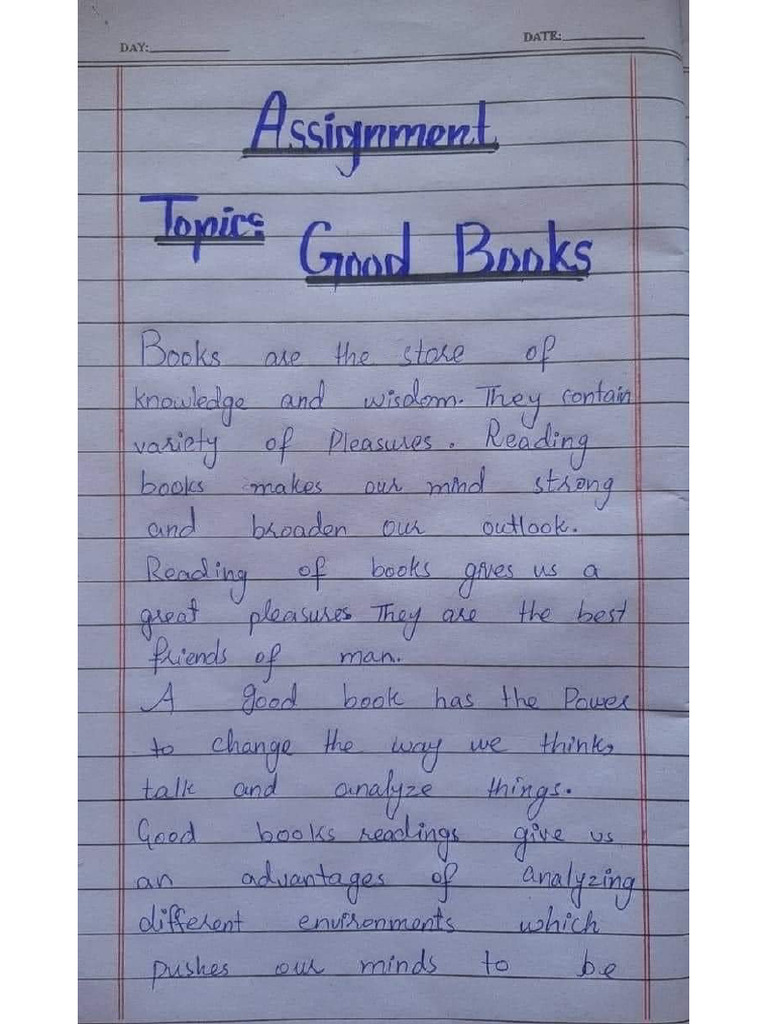 DAY:
DATE:
Assignment
Topic:
Good Books
Books are the store of
knowledge and wisdom. They contain
variety of Pleasures. Reading
books makes our mind strong
and broaden our outlook.
Reading of books gives us a
great pleasures They are the best
friends of man.
A good book has the Power
to change the way we think,
talk and analyze things.
Good books readings give us
an advantages of analyzing
different environments which
pushes our minds to be